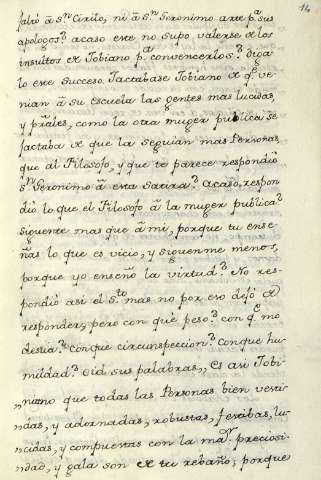 14
faltó â Sn. Cirilo, ni â Sn. Geronimo arte pa. sus
apologos? acaso este no supo valerse de los
insultos de Jobiano pa. convencerlos? diga
lo este succeso. Jactabase Jobiano de qe. ve-
nian â su escuela las gentes mas lucidas,
y prâles, como la otra muger publica se
jactaba de que la seguian mas Personas,
que al Filosofo, y que te parece respondió
Sn. Geronimo â esta satira? acaso, respon
dió lo que el Filosofo â la muger publica?
siguente mas que â mi, porque tu ense-
ñas lo que es vicio, y siguenme menos,
porque yo enseño la virtud? No res-
pondió asi el Sto. mas no por eso dejó de
responder; pero con que peso? con qe. mo
destia? con que circunspeccion? con que hu-
mildad? Oid sus palabras,, Es asi Jobi-
,,niano que todas las Personas bien vesti-
,,das, y adornadas, robustas, festibas, lu-
,,cidas, y compuestas con la mar. preciosi-
,,dad, y gala son de tu rebaño; porque